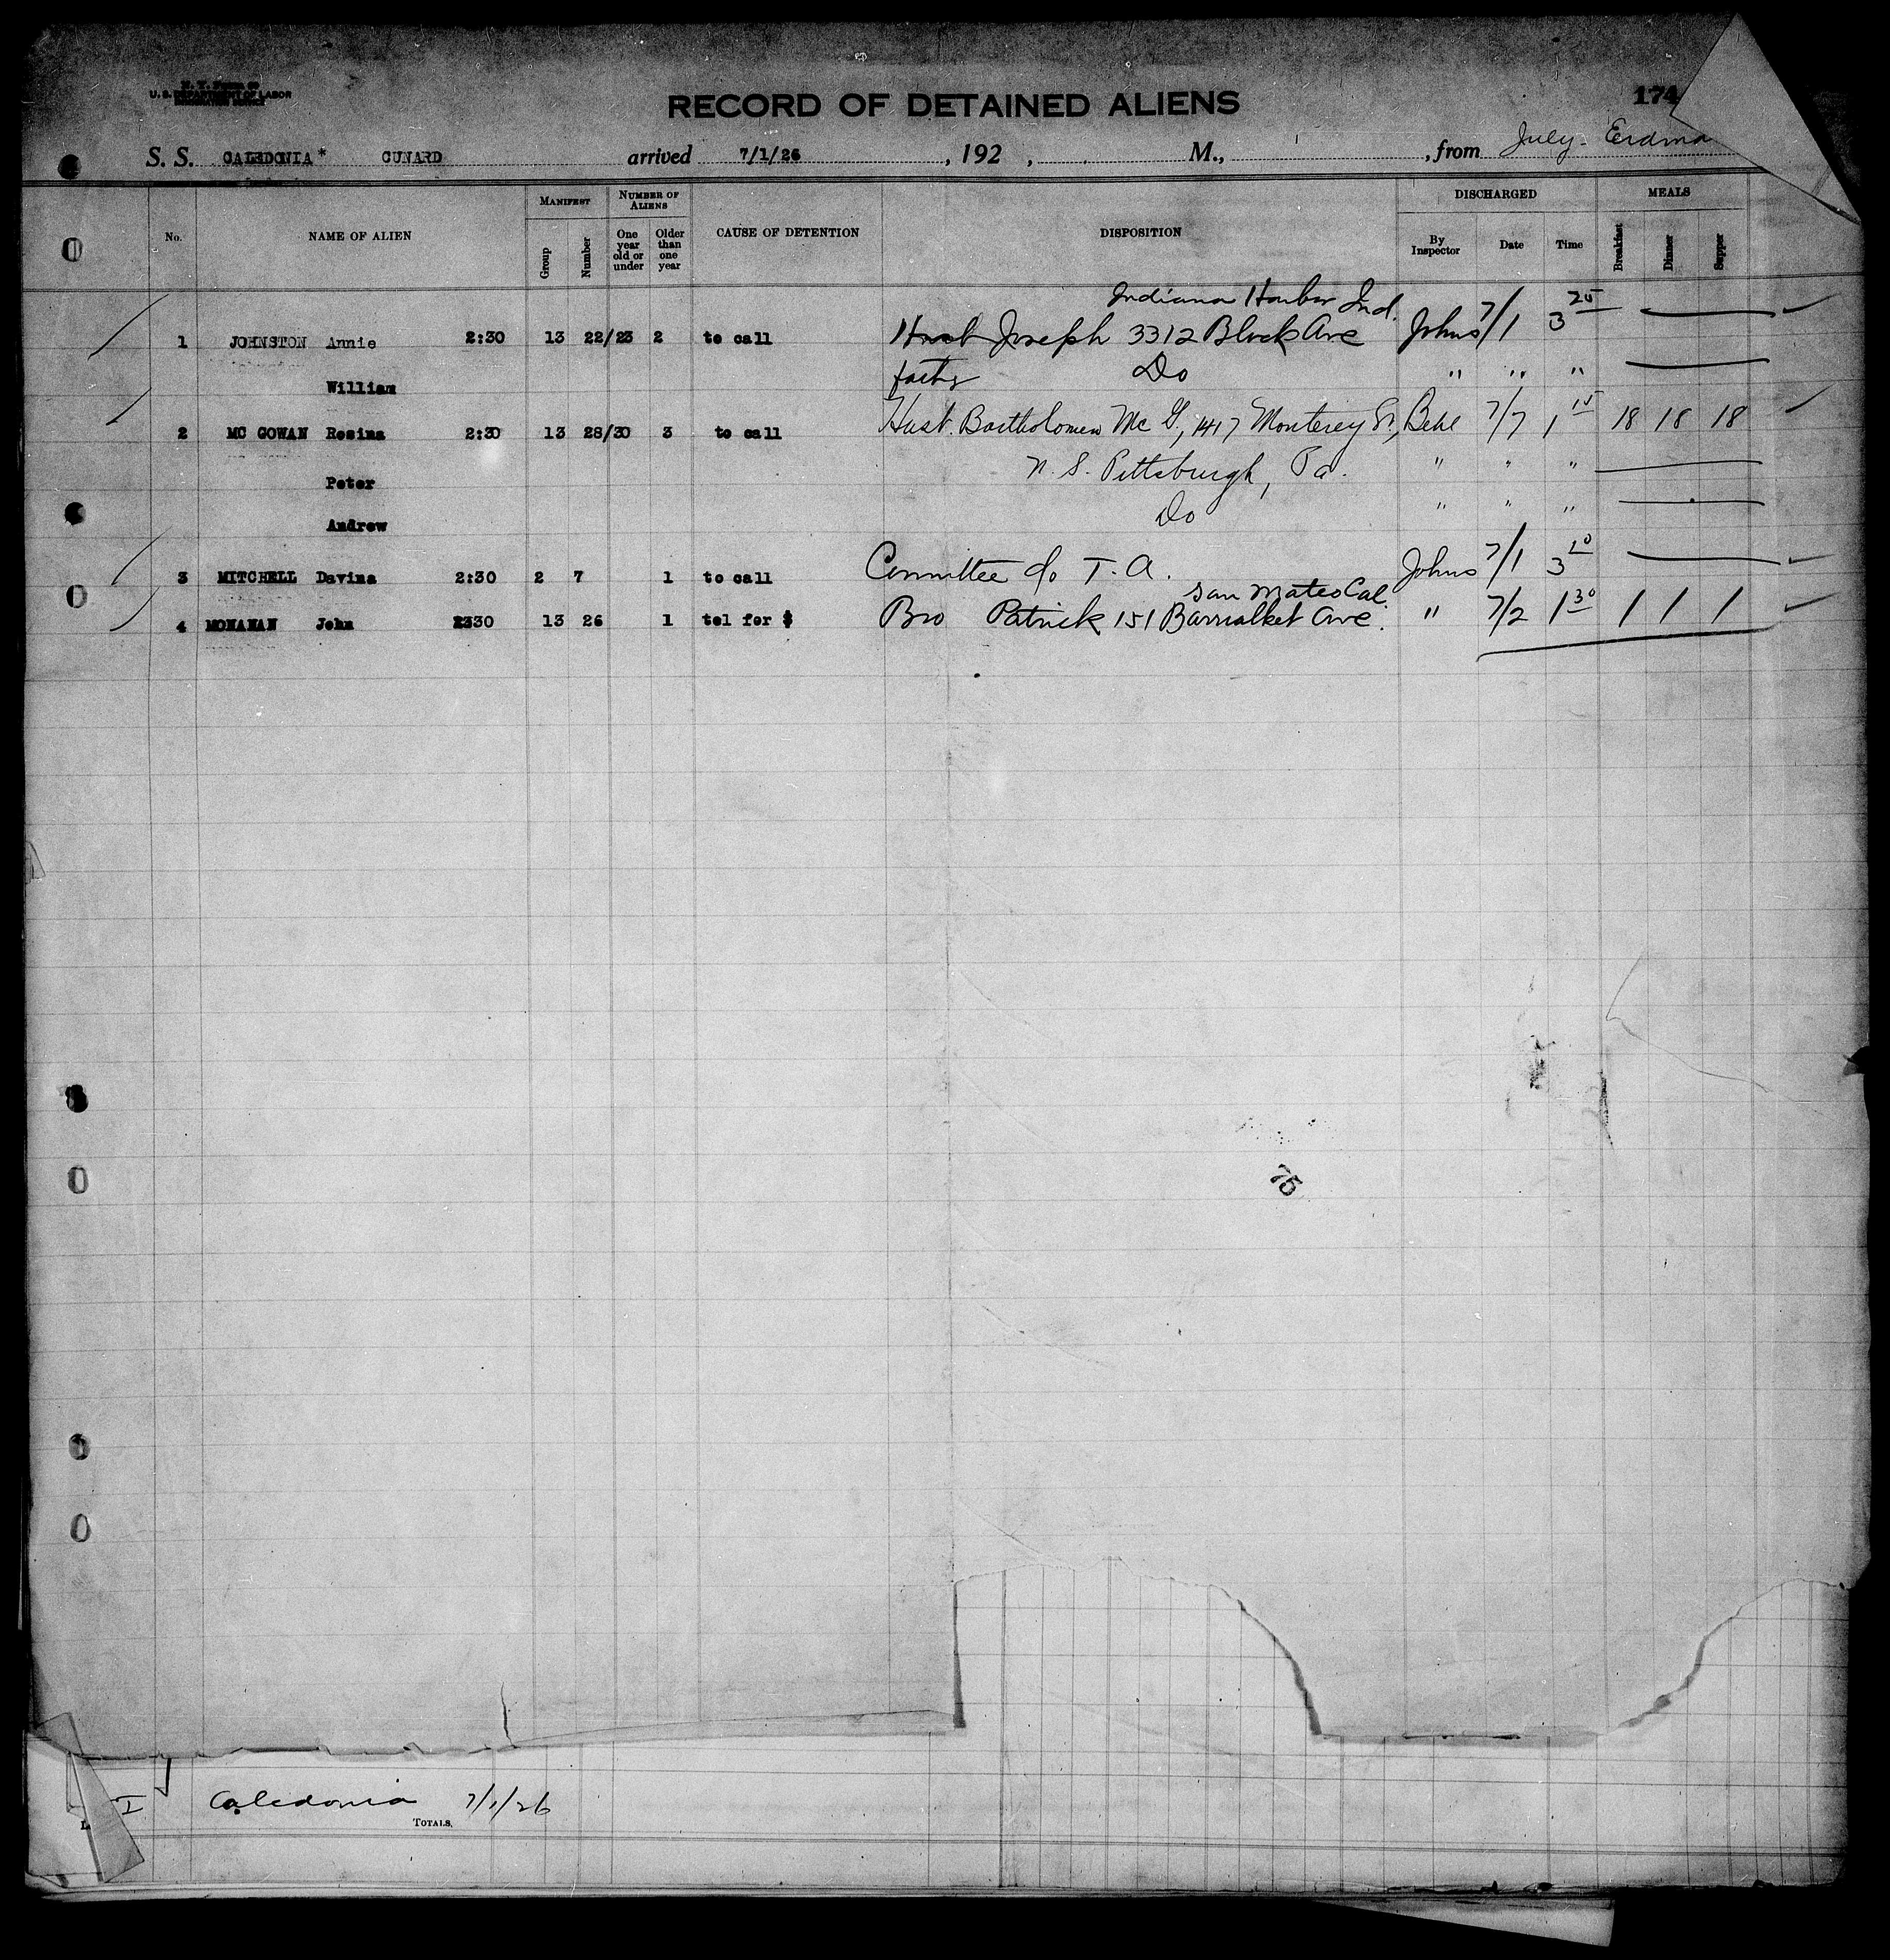 U. S. DEPARTMENT OF LABOR
RECORD OF DETAINED ALIENS
174
S. S. CALEDONIA* CUNARD arrived 7/1/26 , 192 , M., , from July-
MANIFEST NUMBER OF ALIENS DISCHARGED MEALS
No. NAME OF ALIEN Group Number One year old or under Older than one year CAUSE OF DETENTION DISPOSITION By Inspector Date Time Breakfast Dinner Supper
Indiana Harbor Ind.
1 JOHNSTON Annie 2:30 13 22/23 2 to call Husb Joseph 3312 Block Ave Johns 7/1 3 25
William Do " " "
2 MC GOWAN Rosina 2:30 13 28/30 3 to call Husb. Bartholomew Mc G., 1417 Monterey St., 7/7 1 15 18 18 18
Peter N. S. Pittsburgh, Pa. " " "
Andrew Do " " "
3 MITCHELL Davina 2:30 2 7 1 to call Committee c/o T. A. Johns 7/1 3 10
San Mateo Cal.
4 MONAHAN John 2330 13 26 1 tel for $ Bro Patrick 151 Ave. " 7/2 1 30 1 1 1
75
Caledonia 7/1/26
TOTALS,